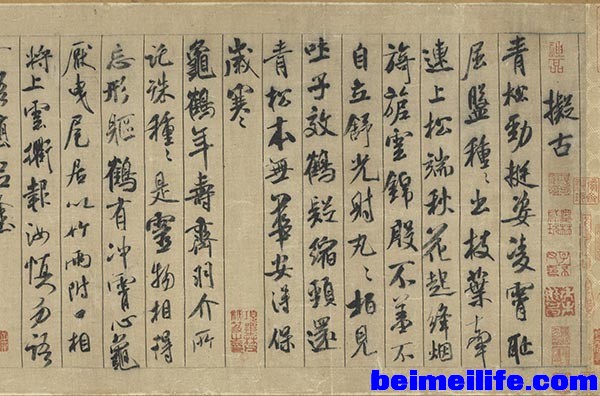 擬古
青松勁挺姿凌霄恥
屈盤種〻出枝葉牽
連上松端秋花起絳烟
旖旎雲錦殷不羞不
自立舒光射丸〻柏見
吐子效鶴疑縮頸還
青松本無華安得保
歲寒〻
龜鶴年壽齊羽介所
託殊種〻是靈物相得
忘形軀鶴有冲霄心龜
厭曳尾居以竹兩附口相
將上雲衢報汝慎勿語
一語墮泥塗
beimeilife.com